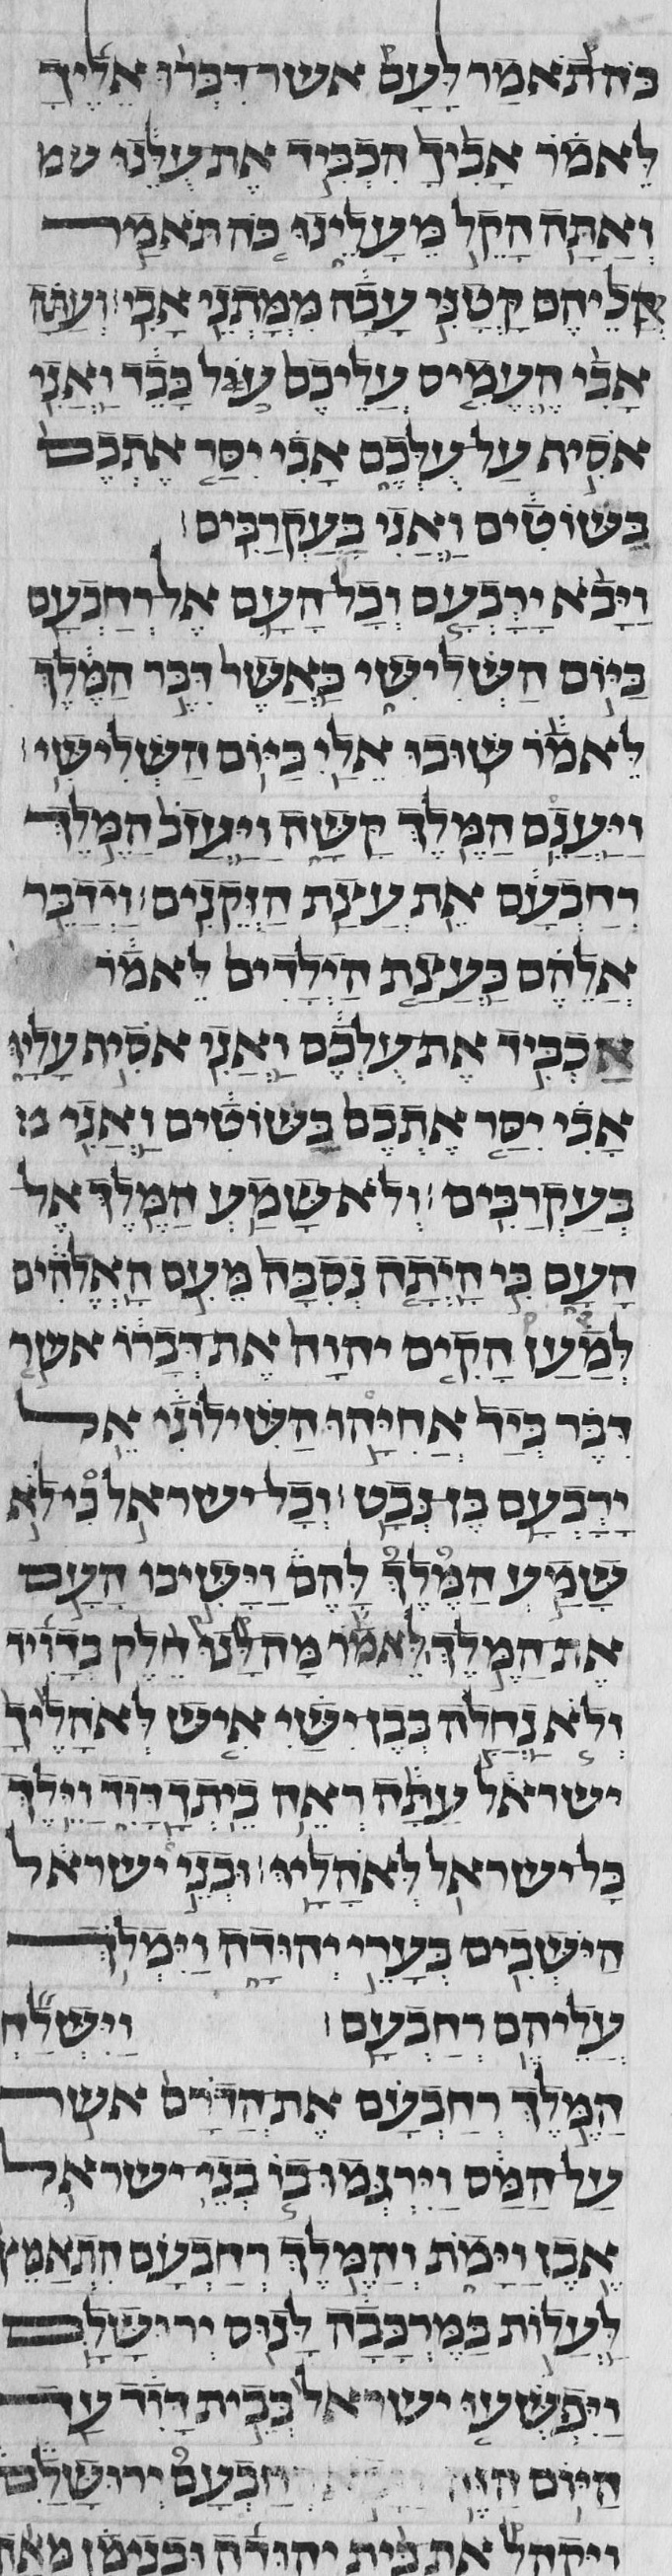 כֹּה תֹּאמַר לָעָם אשר דִּבְּרוּ אֵלֶיךָ
לֵאמֹר אָבִיךָ הִכְבִּיד אֶת עֻלֵּנוּ
וְאַתָּה הָקֵל מֵעָלֵינוּ כֹּה תֹּאמַר
אֲלֵיהֶם קָטָנִּי עָבָה מִמָּתְנֵי אָבִי וְעַתָּה
אָבִי הֶעֱמִיס עֲלֵיכֶם עוֹל כָּבֵד וַאֲנִי
אֹסִיף עַל עֻלְּכֶם אָבִי יִסַּר אֶתְכֶם
בַּשּׁוֹטִים וַאֲנִי בָּעַקְרַבִּים
וַיָּבֹא יָרָבְעָם וְכָל הָעָם אֶל רְחַבְעָם
בַּיּוֹם הַשְּׁלִישִׁי כַּאֲשֶׁר דִּבֶּר הַמֶּלֶךְ
לֵאמֹר שׁוּבוּ אֵלַי בַּיּוֹם הַשְּׁלִישִׁי
וַיַּעַן הַמֶּלֶךְ קָשָׁה וַיַּעֲזֹב הַמֶּלֶךְ
רְחַבְעָם אֶת עֲצַת הַזְּקֵנִים וַיְדַבֵּר
אֲלֵהֶם כַּעֲצַת הַיְלָדִים לֵאמֹר
אַכְבִּיד אֶת עֻלְּכֶם וַאֲנִי אֹסִיף עָלָיו
אָבִי יִסַּר אֶתְכֶם בַּשּׁוֹטִים וַאֲנִי
בְּעַקְרַבִּים וְלֹא שָׁמַע הַמֶּלֶךְ אֶל
הָעָם כִּי הָיְתָה נְסִבָּה מֵעִם הָאֱלֹהִים
לְמַעַן הָקִים יהוה אֶת דְּבָרוֹ אשר
דִּבֶּר בְּיַד אֲחִיָּהוּ הַשִּׁילוֹנִי אֶל
יָרָבְעָם בֶּן נְבָט וְכָל ישראל כִּי לֹא
שָׁמַע הַמֶּלֶךְ לָהֶם וַיָּשִׁיבוּ הָעָם
אֶת הַמֶּלֶךְ לֵאמֹר מַה לָּנוּ חֵלֶק בְּדָוִיד
וְלֹא נַחֲלָה בְּבֶן יִשַׁי אִישׁ לְאֹהָלֶיךָ
ישראל עַתָּה רְאֵה בֵיתְךָ דָּוִד וַיֵּלֶךְ
כָּל ישראל לְאֹהָלָיו וּבְנֵי ישראל
הַיֹּשְׁבִים בְּעָרֵי יְהוּדָה וַיִּמְלֹךְ
עֲלֵיהֶם רְחַבְעָם וַיִּשְׁלַח
הַמֶּלֶךְ רְחַבְעָם אֶת הֲדֹרָם אשר
עַל הַמַּס וַיִּרְגְּמוּ בוֹ בְּנֵי ישראל
אֶבֶן וַיָּמֹת וְהַמֶּלֶךְ רְחַבְעָם הִתְאַמֵּץ
לַעֲלוֹת בַּמֶּרְכָּבָה לָנוּס יְרוּשָׁלִָם
וַיִּפְשְׁעוּ ישראל בְּבֵית דָּוִד עַד
הַיּוֹם הַזֶּה רְחַבְעָם יְרוּשָׁלִַם
ויקהל את בית יהודה ובנימן מאה